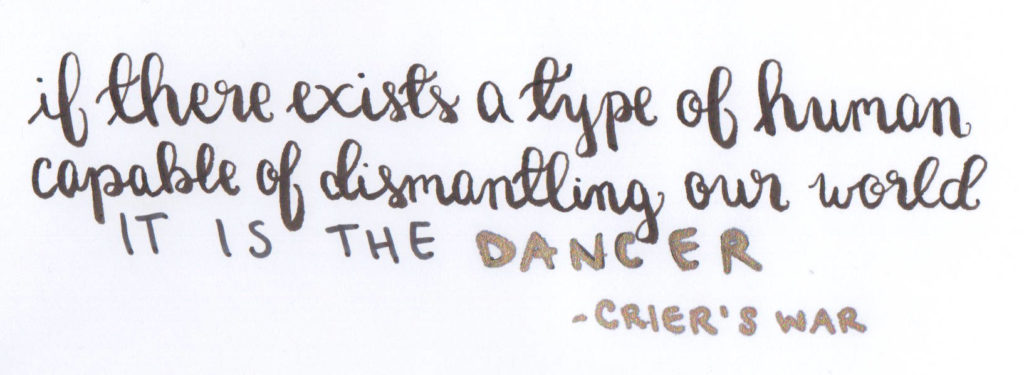 if there exists a type of human
capable of dismantling our world
IT IS THE DANCER
-CRIER'S WAR